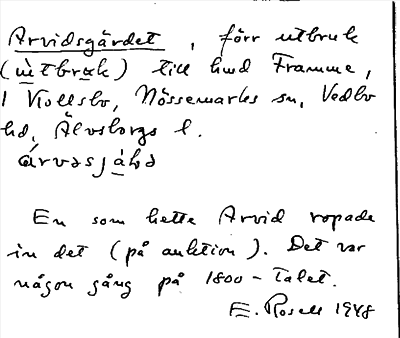 Arvidsgärdet, förr utbruk
(ùtbrak) till hmd Framme,
1 Kollsbo, Nössemarks sn, Vedbo
hd, Älvsborgs l.
árvəsjàhə
En som hette Arvid ropade
in det (på auktion). Det var
någon gång på 1800-talet.
E. Rosell 1948